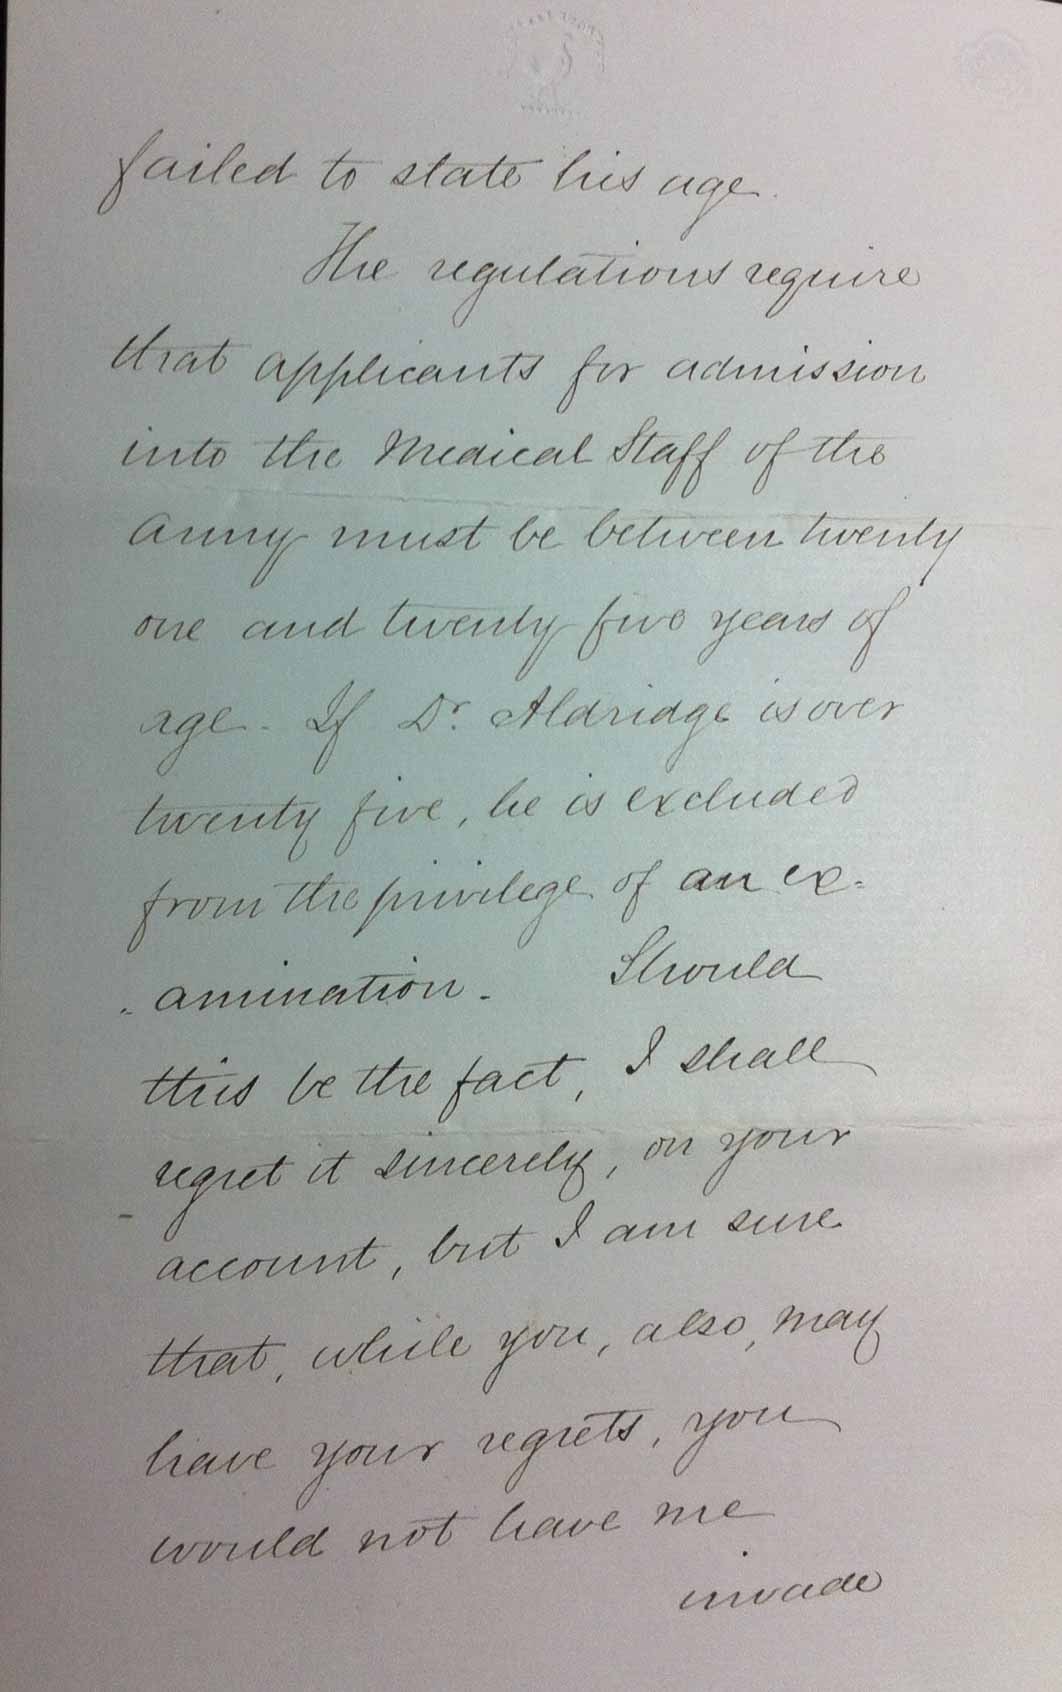 failed to state his age.
The regulations require
that applicants for admission
into the Medical Staff of the
Army must be between twenty
one and twenty five years of
age. If Dr. Aldridge is over
twenty five, he is excluded
from the privilege of an ex-
amination. Should
this be the fact, I shall
regret it sincerely, on your
account, but I am sure
that, while you, also, may
have your regrets, you
would not have me
invade